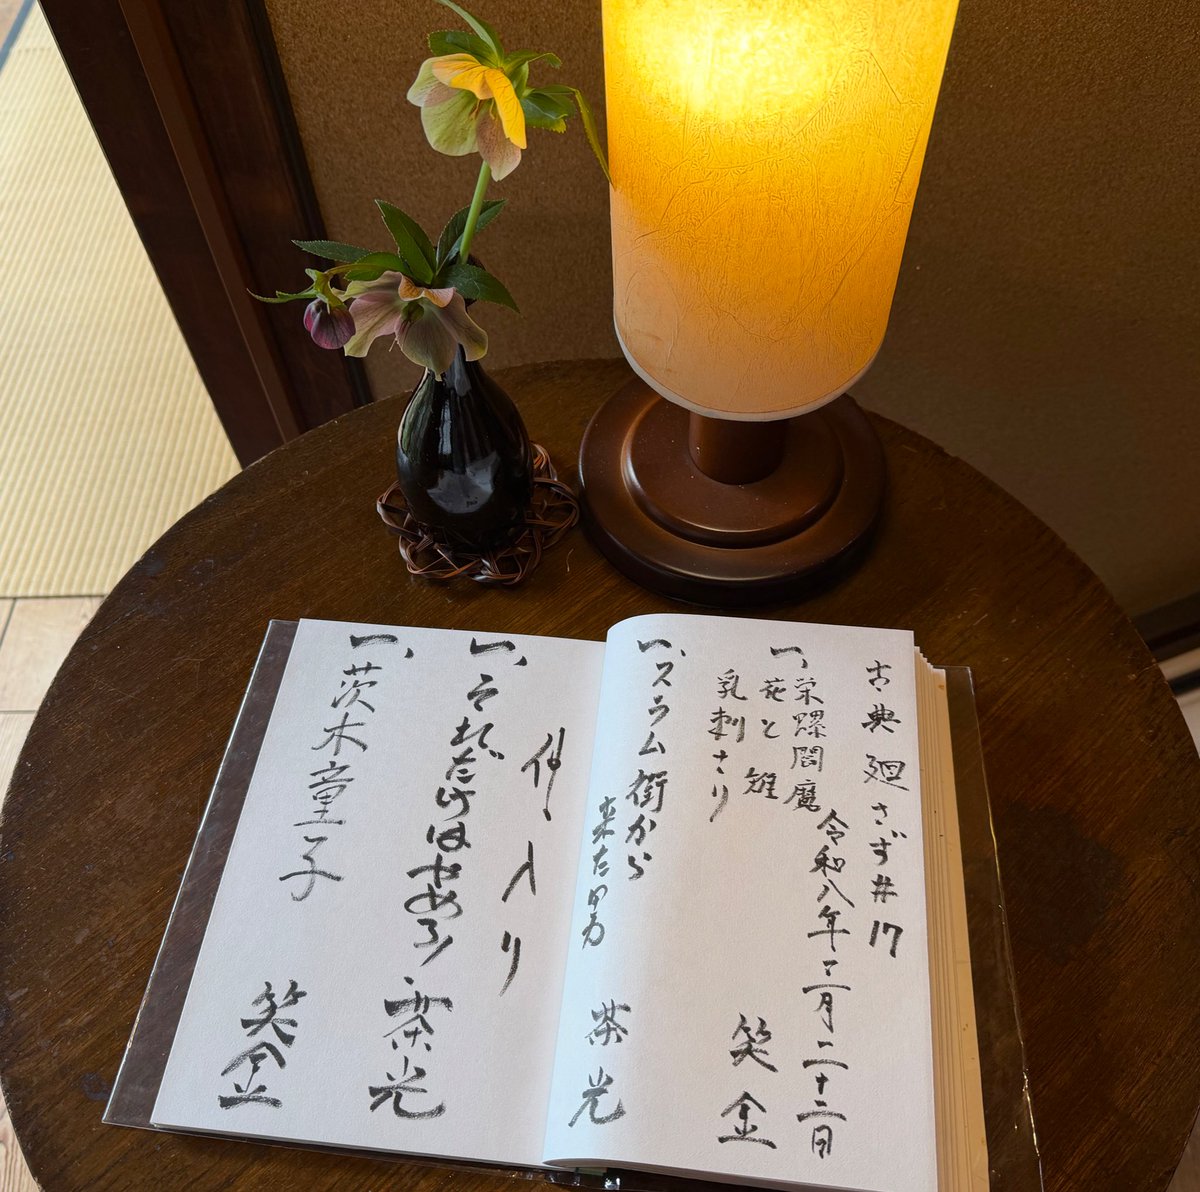 古典廻さず#17
令和八年二月二十二日
一、栄螺閻魔
花と雉
乳刺さり
笑金
一、スラム街から
来た男
茶光
仲入り
一、それだけはやめろ!
茶光
一、茨木童子
笑金